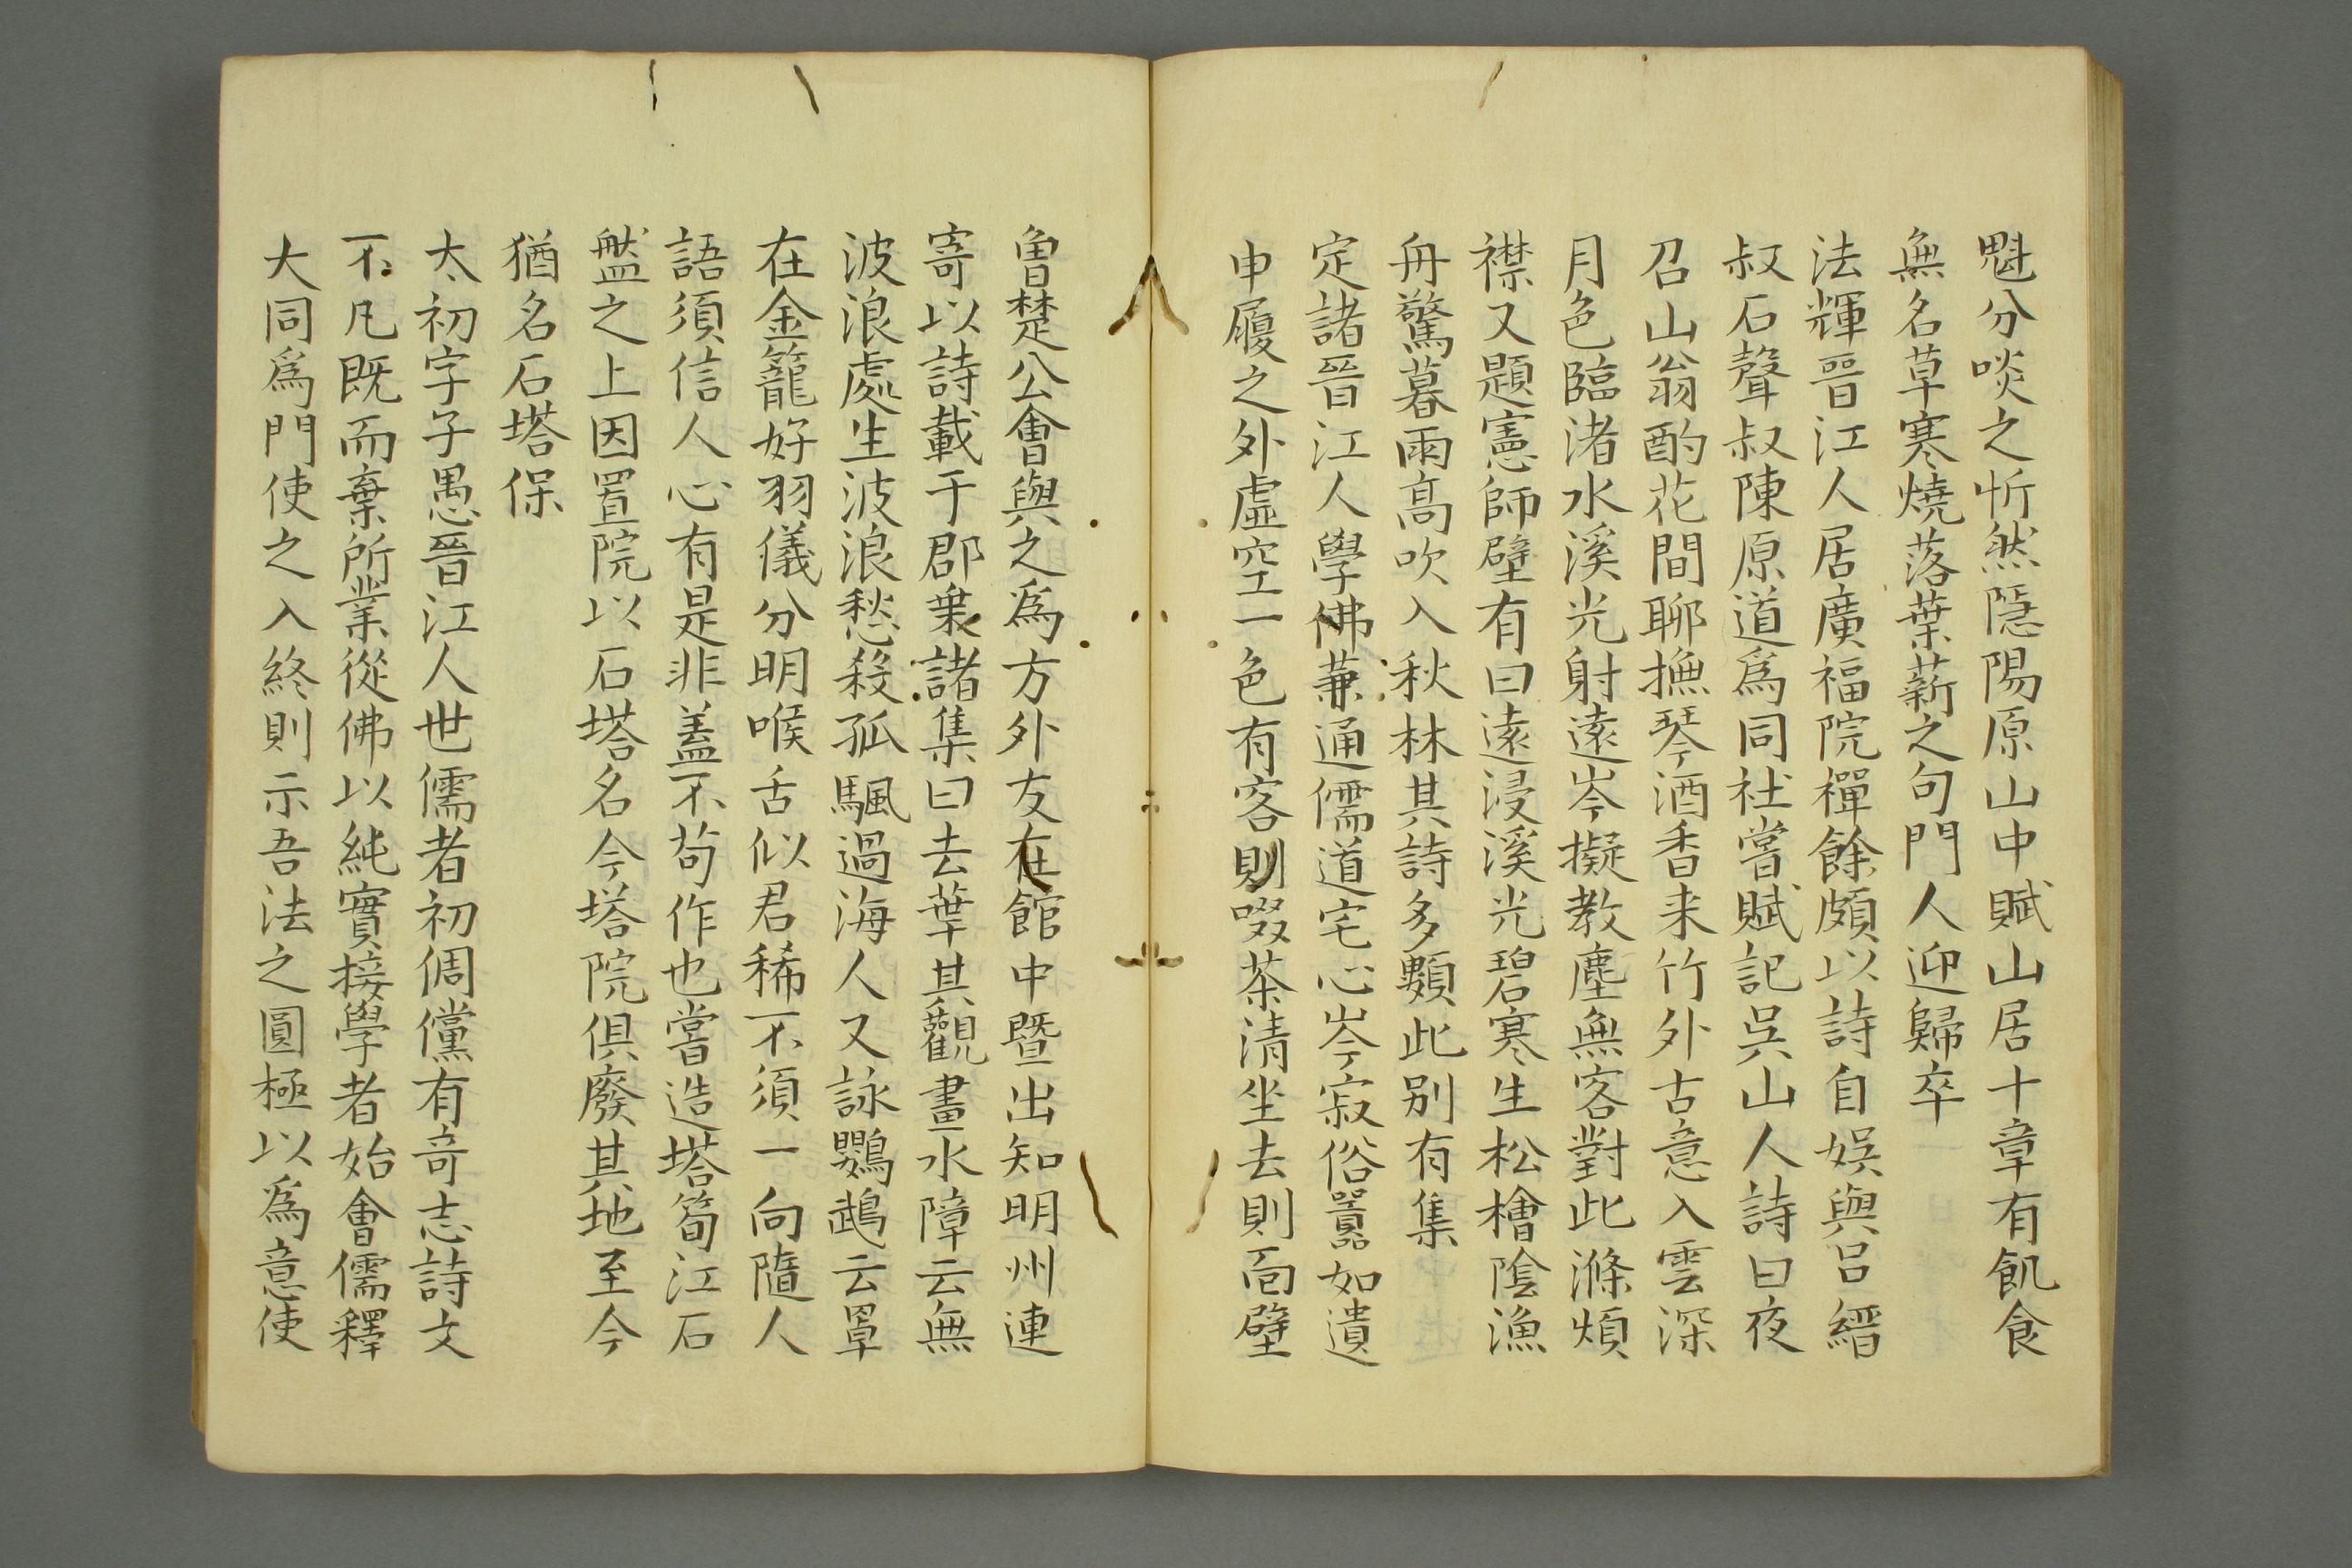 魁分啖之忻然隱陽原山中賦山居十章有飢食
無名草寒燒落葉薪之句門人迎歸卒
法輝晉江人居廣福院禪餘頗以詩自娛與呂縉
叔石聲叔陳原道爲同社嘗賦記吳山人詩曰夜
召山翁酌花間聊撫琴酒香来竹外古意入雲深
月色臨渚水溪光射遠岑擬教塵無客對此滌煩
襟又題憲師壁有曰遠浸溪光碧寒生松檜陰漁
舟驚暮雨高吹入秋林其詩多類此別有集
定諸晉江人學佛兼通儒道宅心岑寂俗囂如遺
申履之外虛空一色有客則啜茶清坐去則面壁
魯楚公會與之爲方外友在館中暨出知明州連
寄以詩載于郡乗諸集曰去華其觀畫水障云無
波浪處生波浪愁殺孤颿過海人又詠鸚鵡云罩
在金籠好羽儀分明喉舌似君稀不須一向隨人
語須信人心有是非蓋不苟作也嘗造塔筍江石
盤之上因置院以石塔名今塔院俱廢其地至今
猶名石塔保
太初字子愚晉江人世儒者初倜儻有奇志詩文
不凡既而棄所業從佛以純實接學者始會儒釋
大同爲門使之入終則示吾法之圓極以爲意使